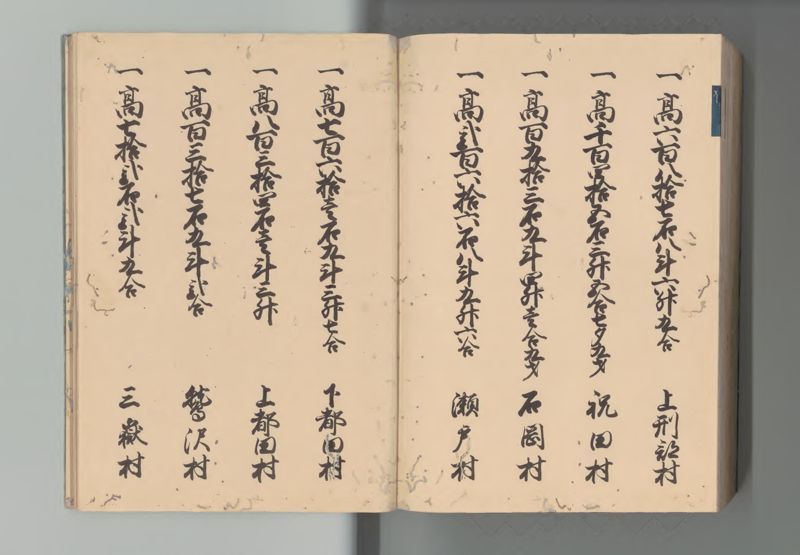 一高六百八拾七石八斗六升九合 上刑部村
一高千百四拾五石三升五合七夕九才 祝田村
一高百九拾三石九斗四升壱合九才 石岡村
一高弐百六拾六石八斗九升六合 瀬戸村
一高七百六拾壱石九斗三升七合 下都田村
一高八百三拾四石壱斗三升 上都田村
一高百三拾七石九斗弐合 鷲沢村
一高七拾弐石弐斗九合 三嶽村